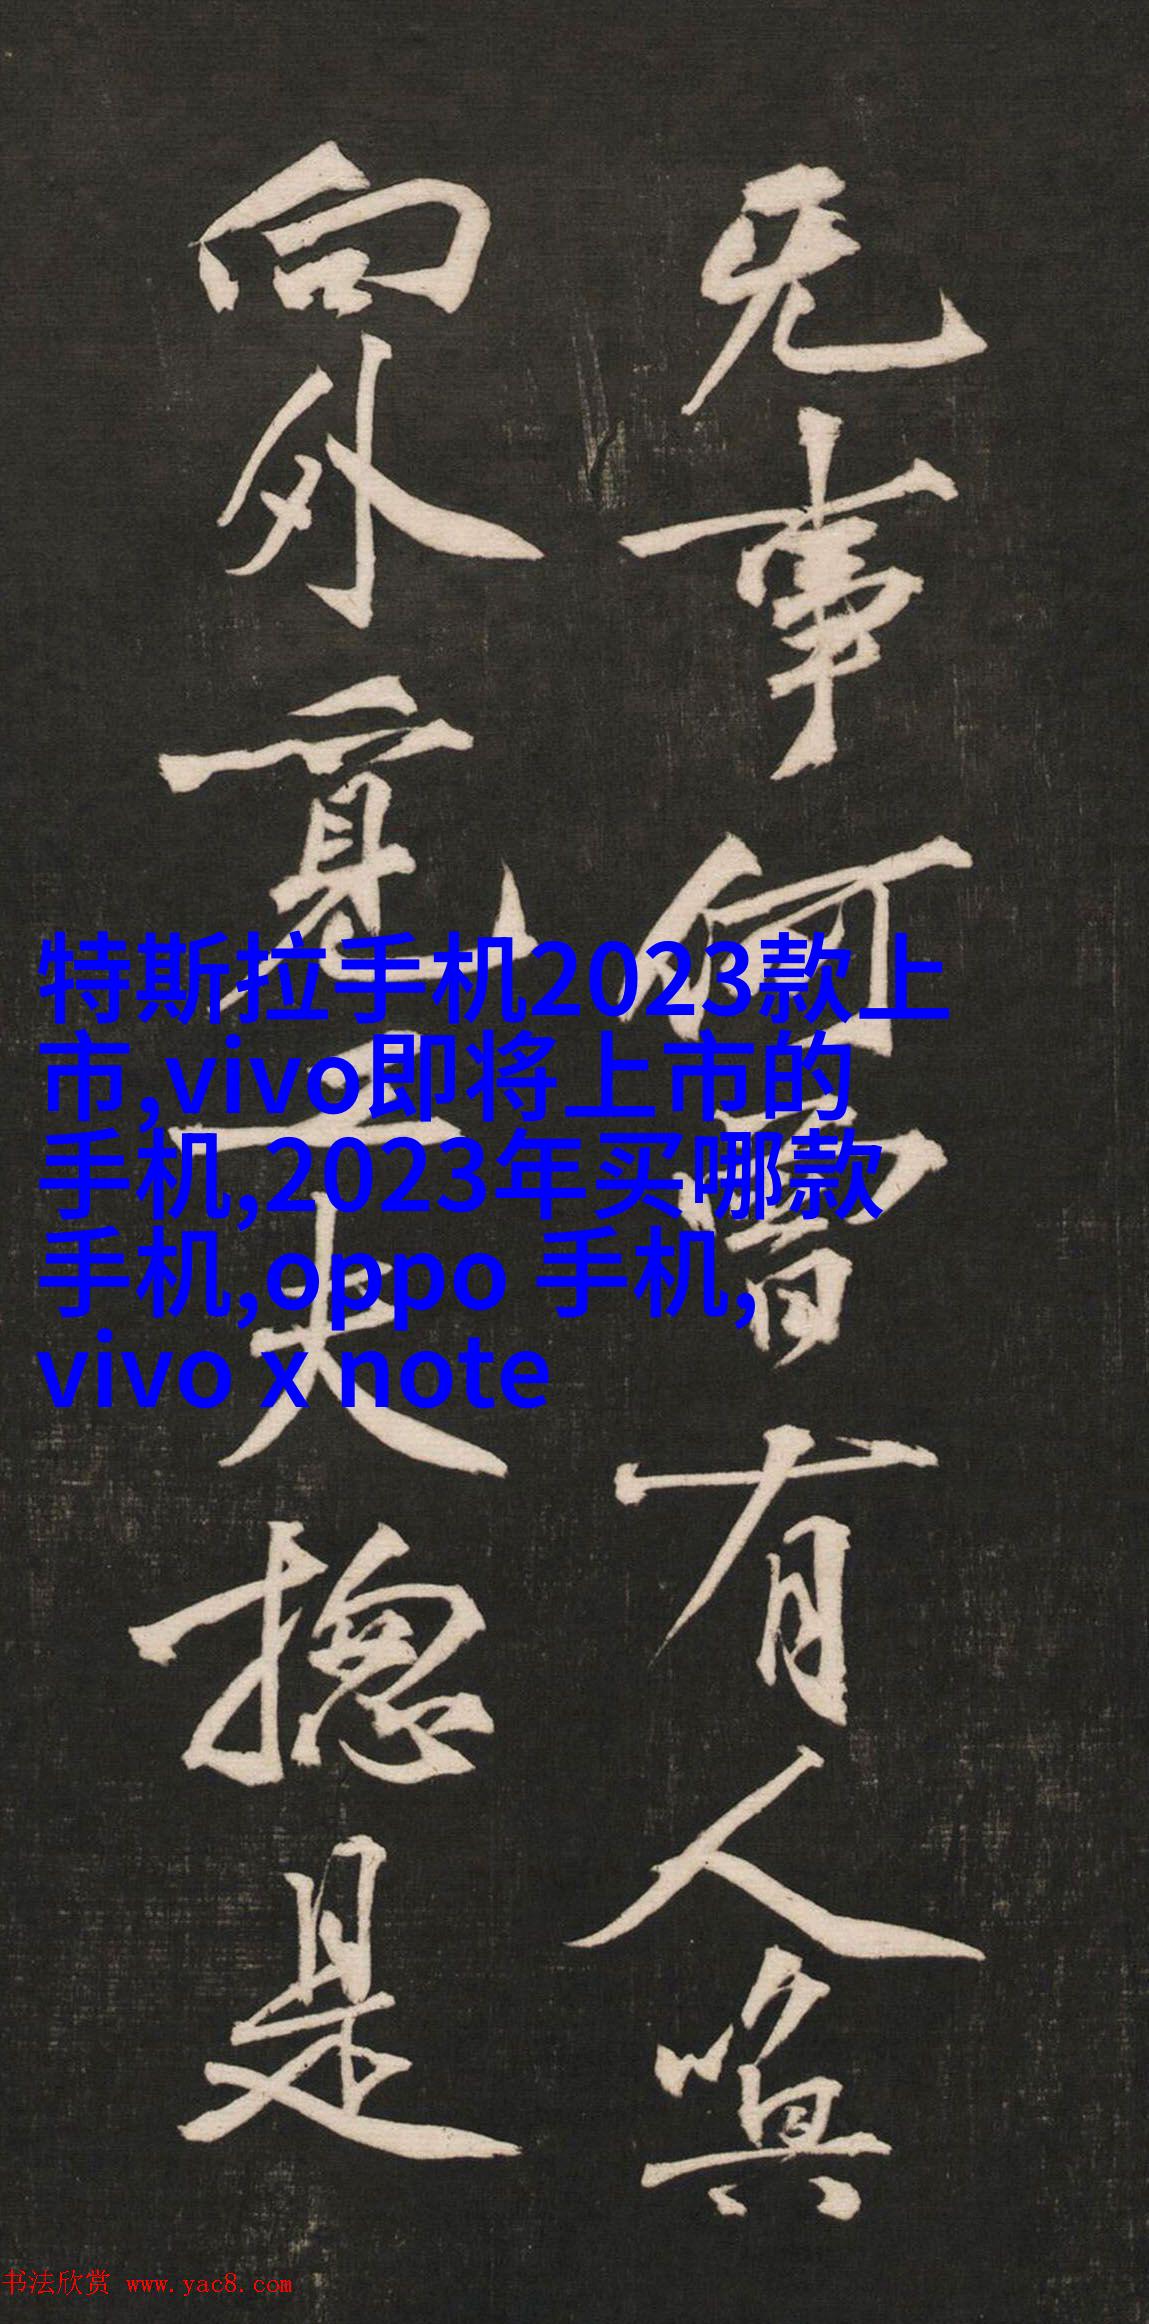 无事何曾有人
向外覓工夫揔是
特斯拉手机2023款上
市,vivo即将上市的
手机,2023年买哪款
手机,oppo 手机,
vivo x note
书法欣赏 www.yac8.com